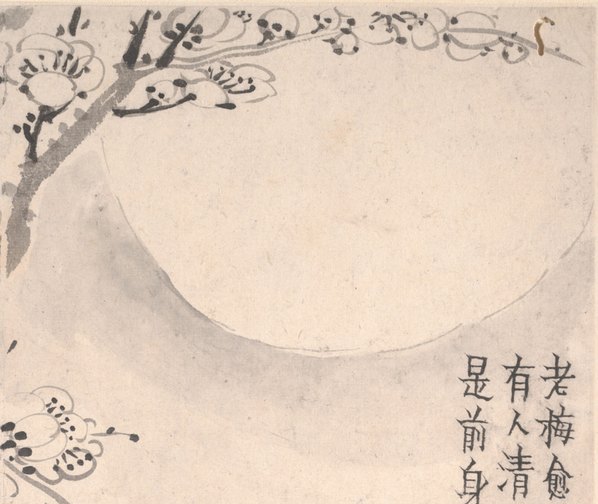 老梅愈
有人清
是前身